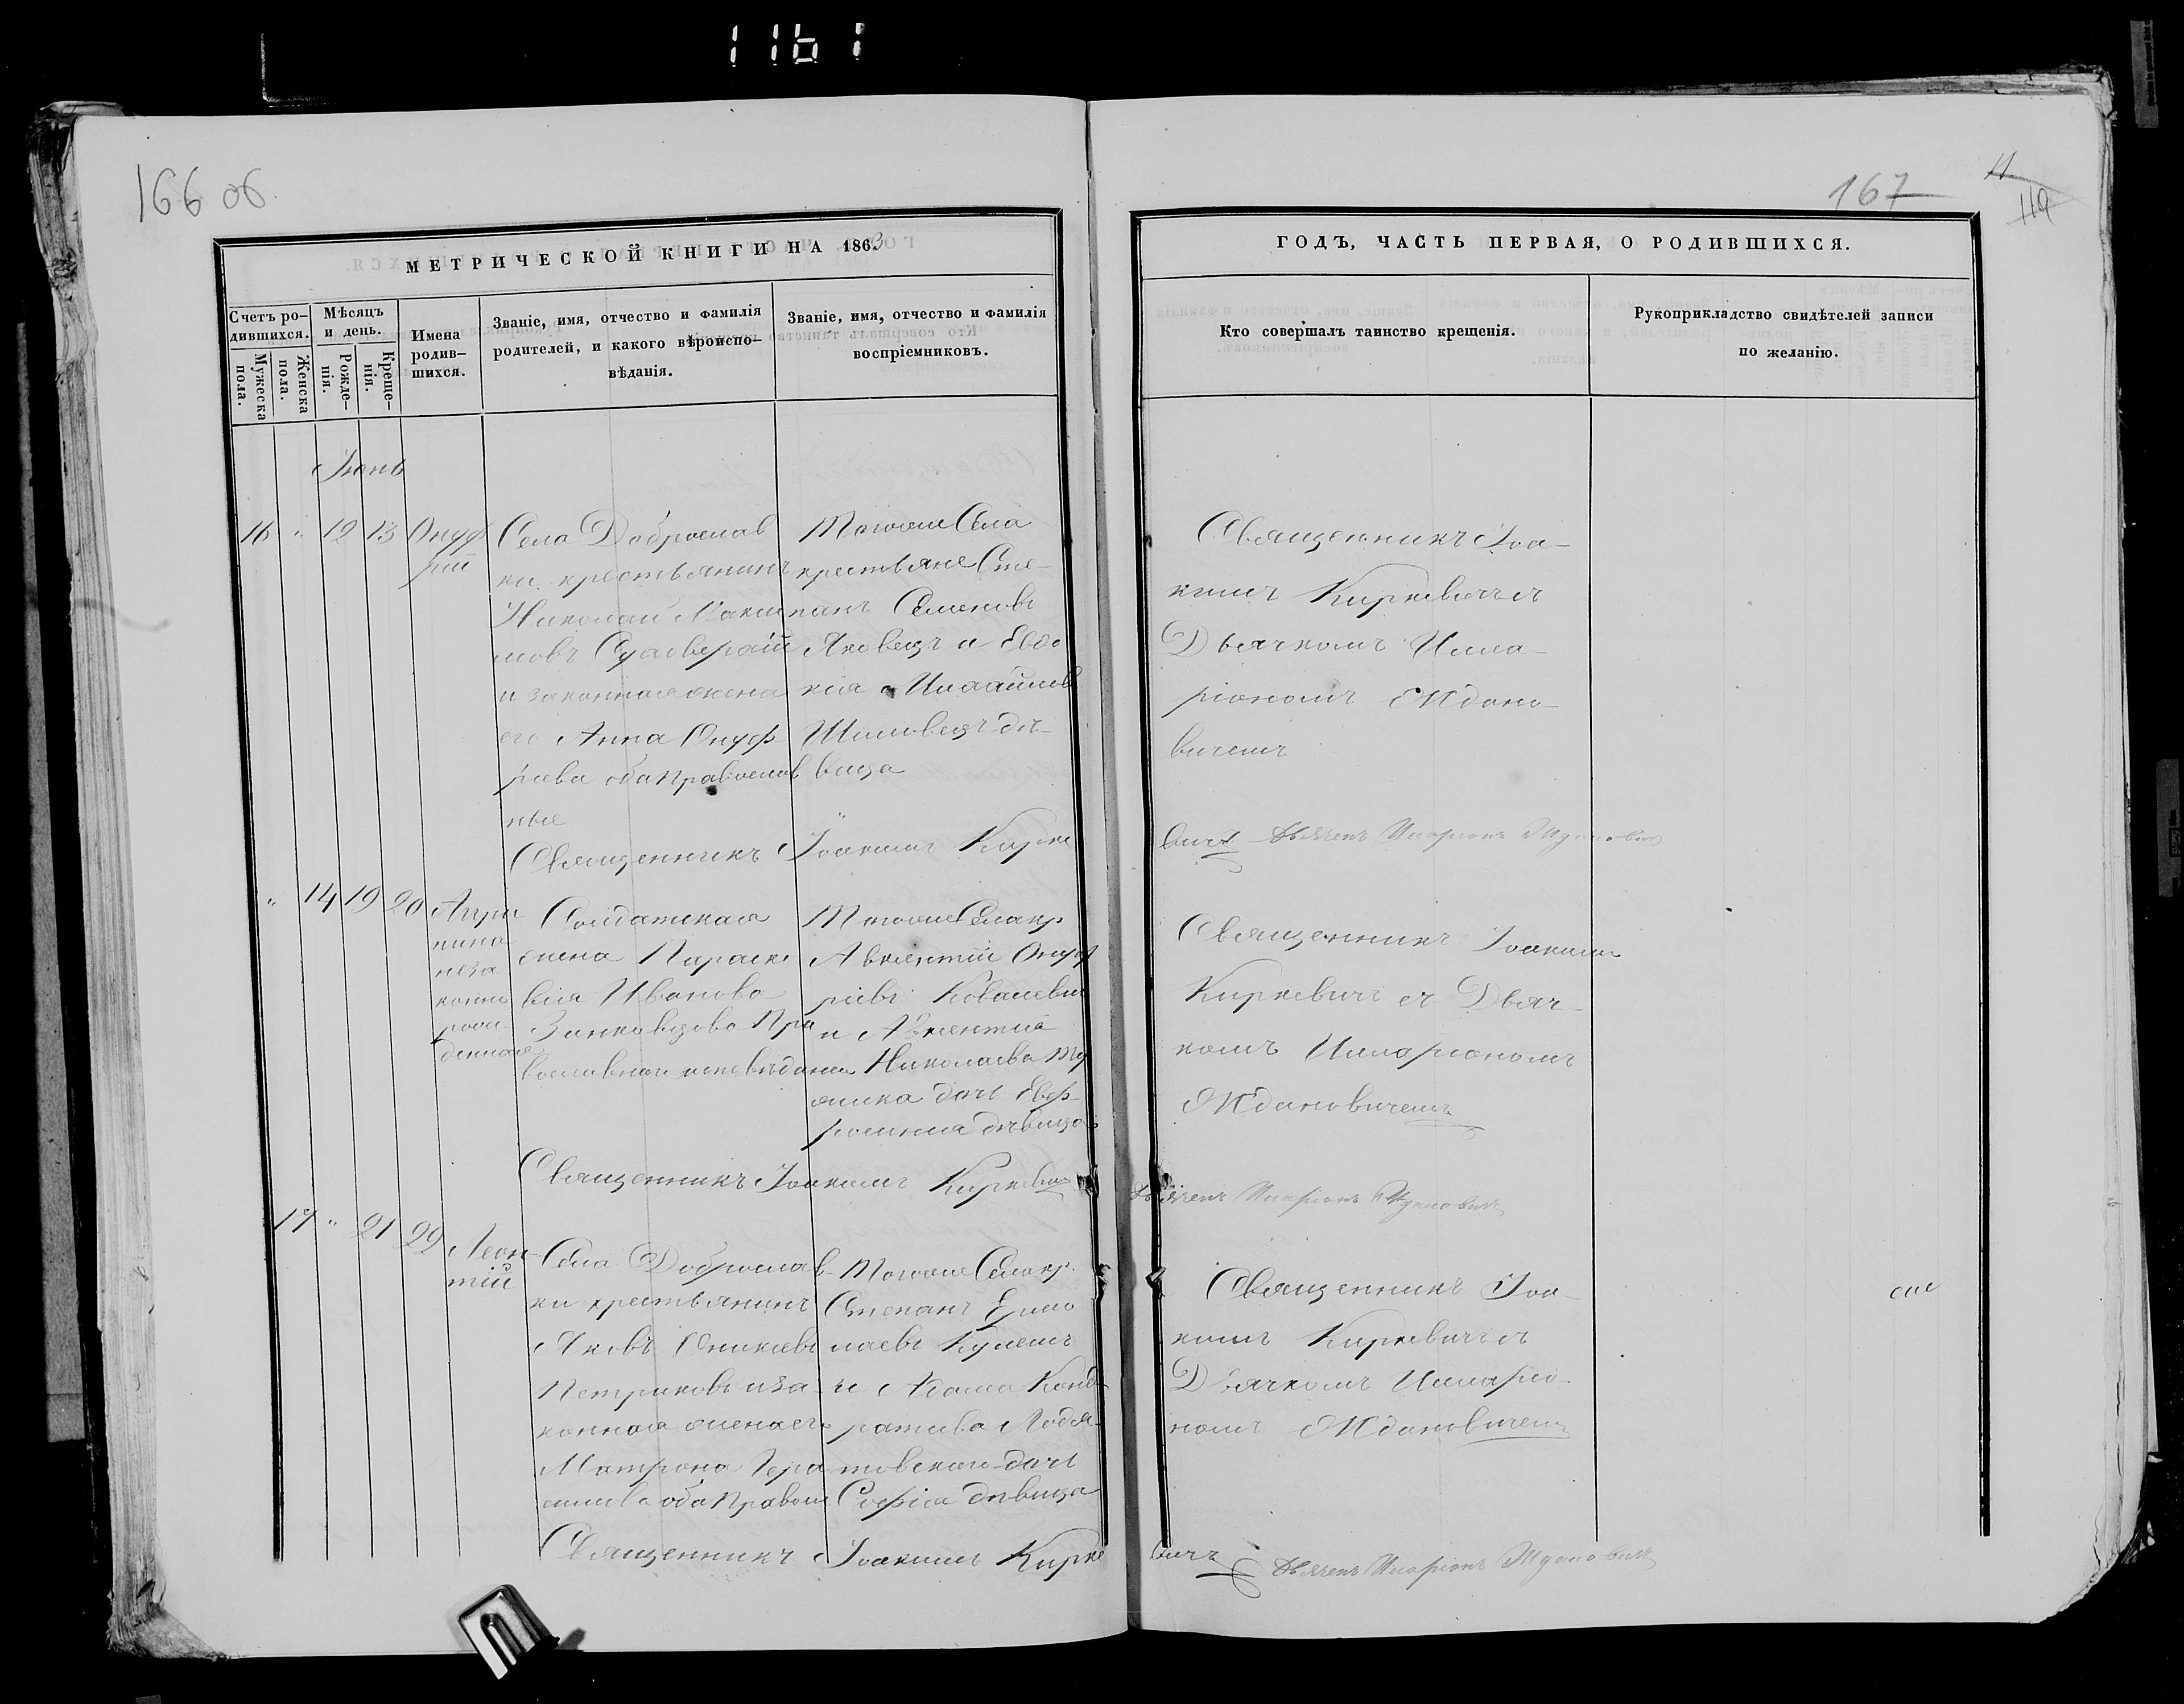 1161
166 об.
167
119
МЕТРИЧЕСКОЙ КНИГИ НА 1863
ГОДЪ, ЧАСТЬ ПЕРВАЯ, О РОДИВШИХСЯ.
Счетъ ро-
дившихся.
Мужеска
пола.
Женска
пола.
Мѣсяцъ
и день.
Рожде-
нія.
Креще-
нія.
Имена
родив-
шихся.
Званіе, имя, отчество и фамилія
родителей, и какого вѣроиспо-
вѣданія.
Званіе, имя, отчество и фамилія
воспріемниковъ.
Кто совершалъ таинство крещенія.
Рукоприкладство свидѣтелей записи
по желанію.
Іюнь
16 " 12 13 Онуф
рій
Села Доброслав
ки крестьянинъ
Николай Макси
мовъ
и законная жена
его Анна Онуф
ріева оба православ
ные
Тогоже Села
крестьяне Сте-
панъ Семеновъ
Яковецъ и Евдо
кія
Шиловецъ дѣ-
вица
Священникъ Іоа-
кимъ Киркевичъ съ
Дьячкомъ Илла-
ріономъ Ждано-
вичемъ
Священникъ Іоакимъ Кирке
вичъ Дьячекъ Иларіонъ Ждановичъ
" 14 19 20 Агри
пина
неза
конно
рож
денная
Солдатская
жена Параске
вія Иванова
Занковцова Пра
вославнаго исповѣданія
Тогоже Села кр.
Авксентій Онуф
ріевъ Ковалевичъ
и Авксентія
Николаева
дочь Евф-
росинія дѣвица
Священникъ Іоакимъ
Киркевичъ съ Дьяч-
комъ Илларіономъ
Ждановичемъ
Священникъ Іоакимъ Киркевичъ
Дьячекъ Иларіонъ Ждановичъ
17 " 21 29 Леон-
тій
Села Доброслав-
ки крестьянинъ
Яковъ
Петриковъ и за-
конная жена его
Матрона Гера
симова оба Правосл
Тогоже Села кр.
Степанъ Ермо
лаевъ Кулешъ
и Адама Конд-
ратьева
дочь
Софія дѣвица
Священникъ Іоа-
кимъ Киркевичъ съ
Дьячкомъ Илларіо-
номъ Ждановичемъ
Священникъ Іоакимъ Кирке
вичъ Дьячекъ Иларіонъ Ждановичъ